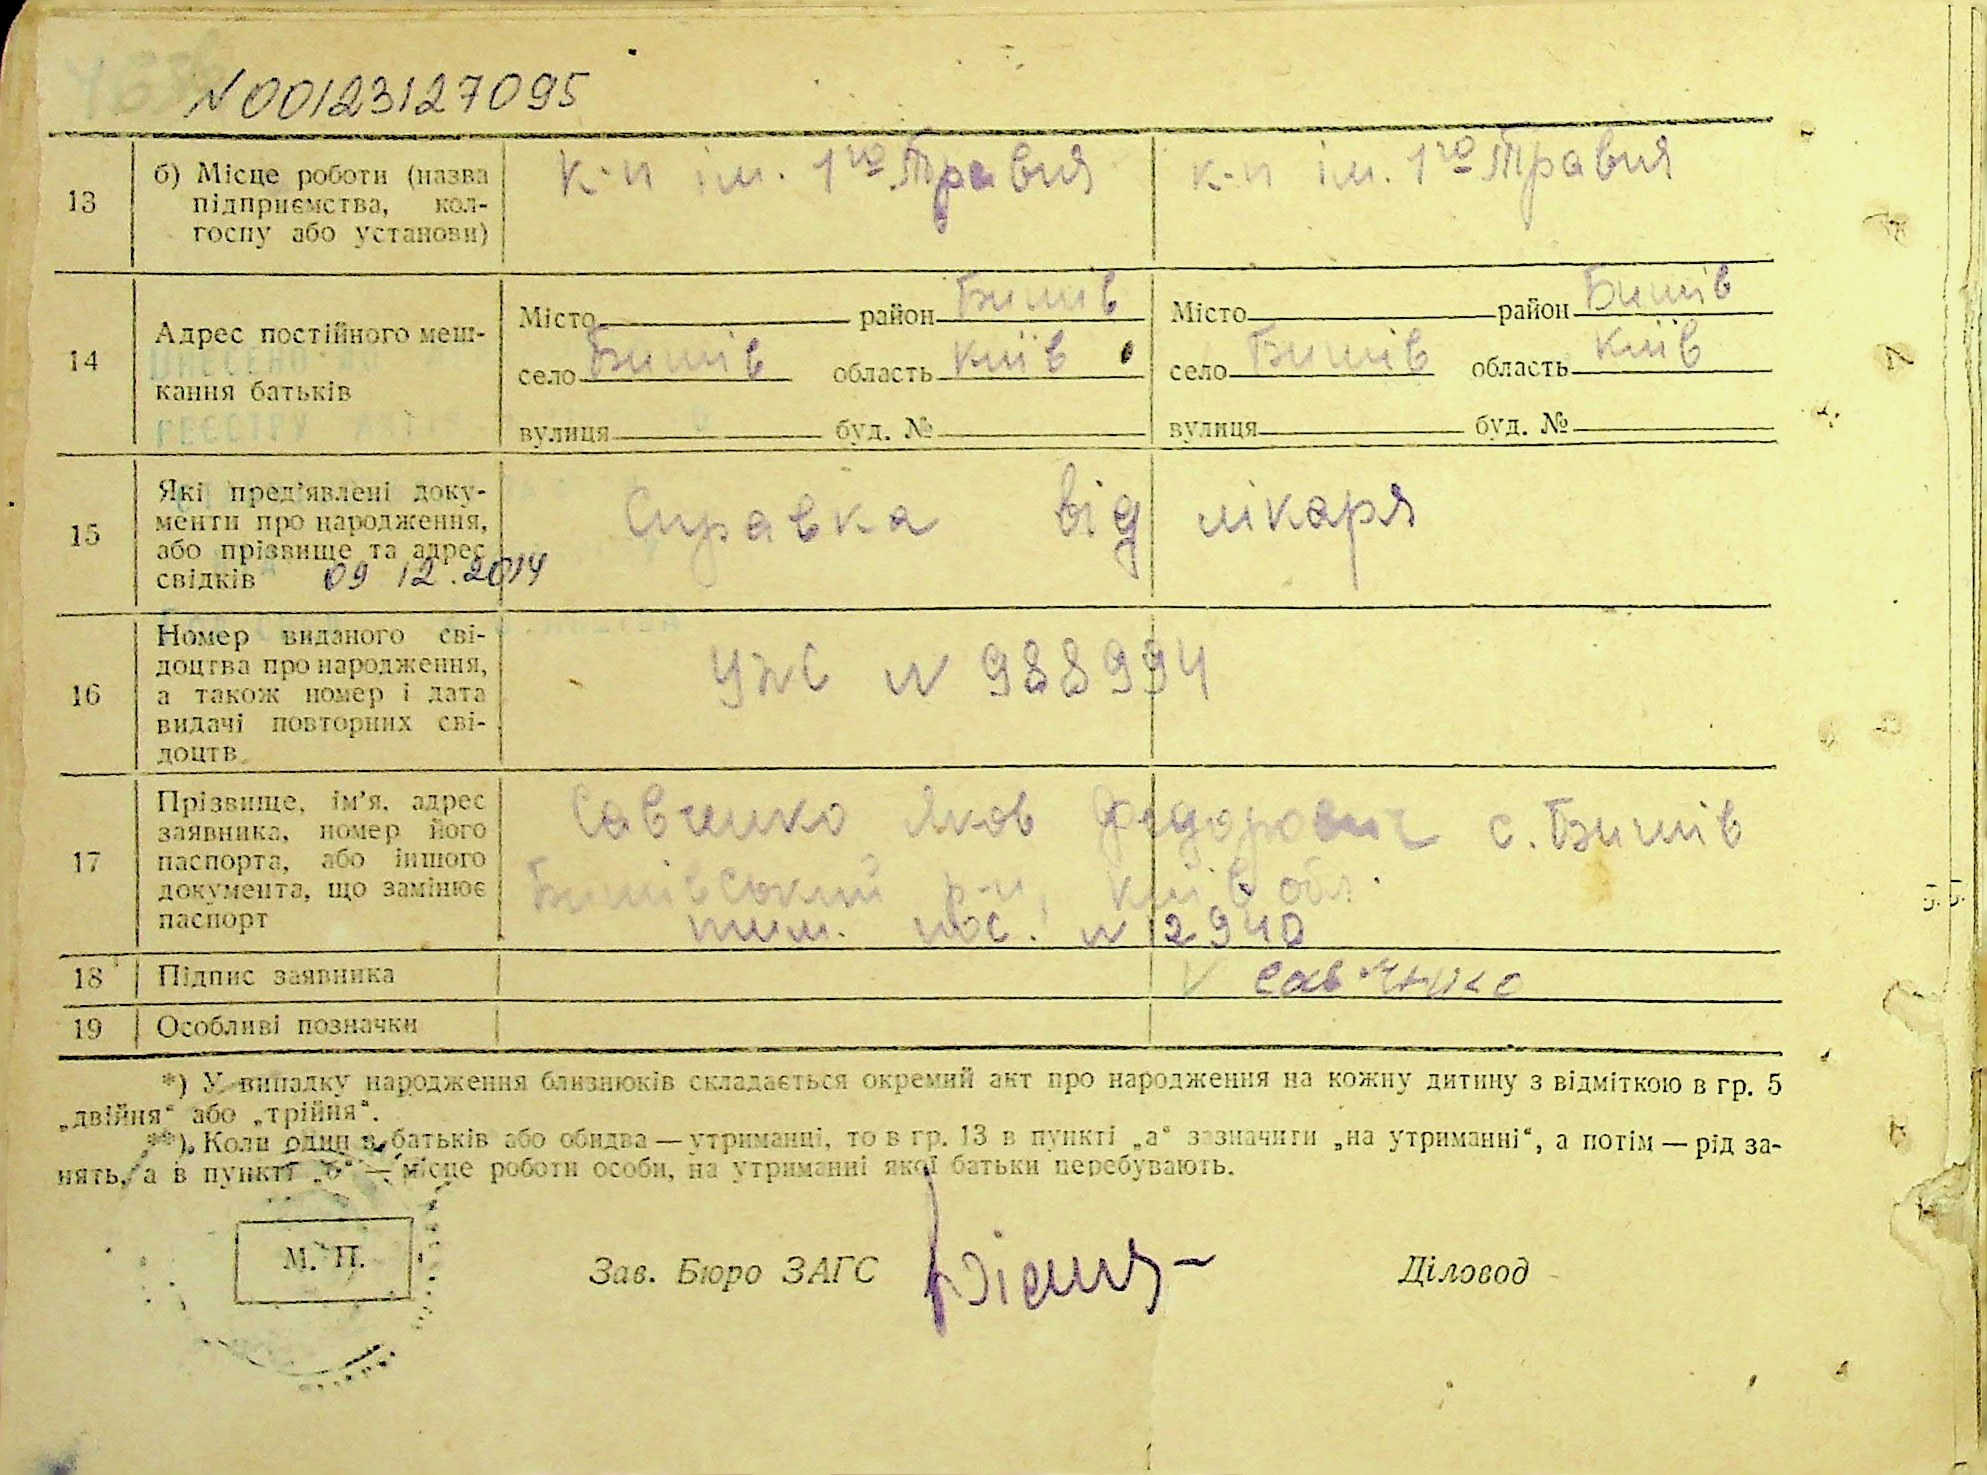 N 00123127095
13 б) Місце роботи (назва підприємства, кол-госпу або установи) к-п ім. 1го Травня к-п ім. 1го Травня
14 Адрес постійного меш-кання батьків
Місто район Бишів Місто район Бишів
село Бишів область Київ село Бишів область Київ
вулиця буд. № вулиця буд. №
15 Які пред'явлені доку-
менти про народження,
або прізвище та адрес
свідків 09 12.2014
Справка від лікаря
16 Номер виданого сві-
доцтва про народження,
а також номер і дата
видачі повторних сві-
доцтв
УЖС N 988994
17 Прізвище, ім'я, адрес
заявника, номер його
паспорта, або іншого
документа, що замінює
паспорт
Савченко Яков Федорович с. Бишів
Бишівський р-н, Київ обл.
тим. пос. N 2940
18 Підпис заявника Савченко
19 Особливі позначки
*) У випадку народження близнюків складається окремий акт про народження на кожну дитину з відміткою в гр. 5
„двійня“ або „трійня“.
**) Коли один з батьків або обидва — утриманці, то в гр. 13 в пункті „а“ зазначити „на утриманні“, а потім — рід за-
нять, а в пункті „б“ — місце роботи особи, на утриманні якої батьки перебувають.
М. П. Зав. Бюро ЗАГС Діловод